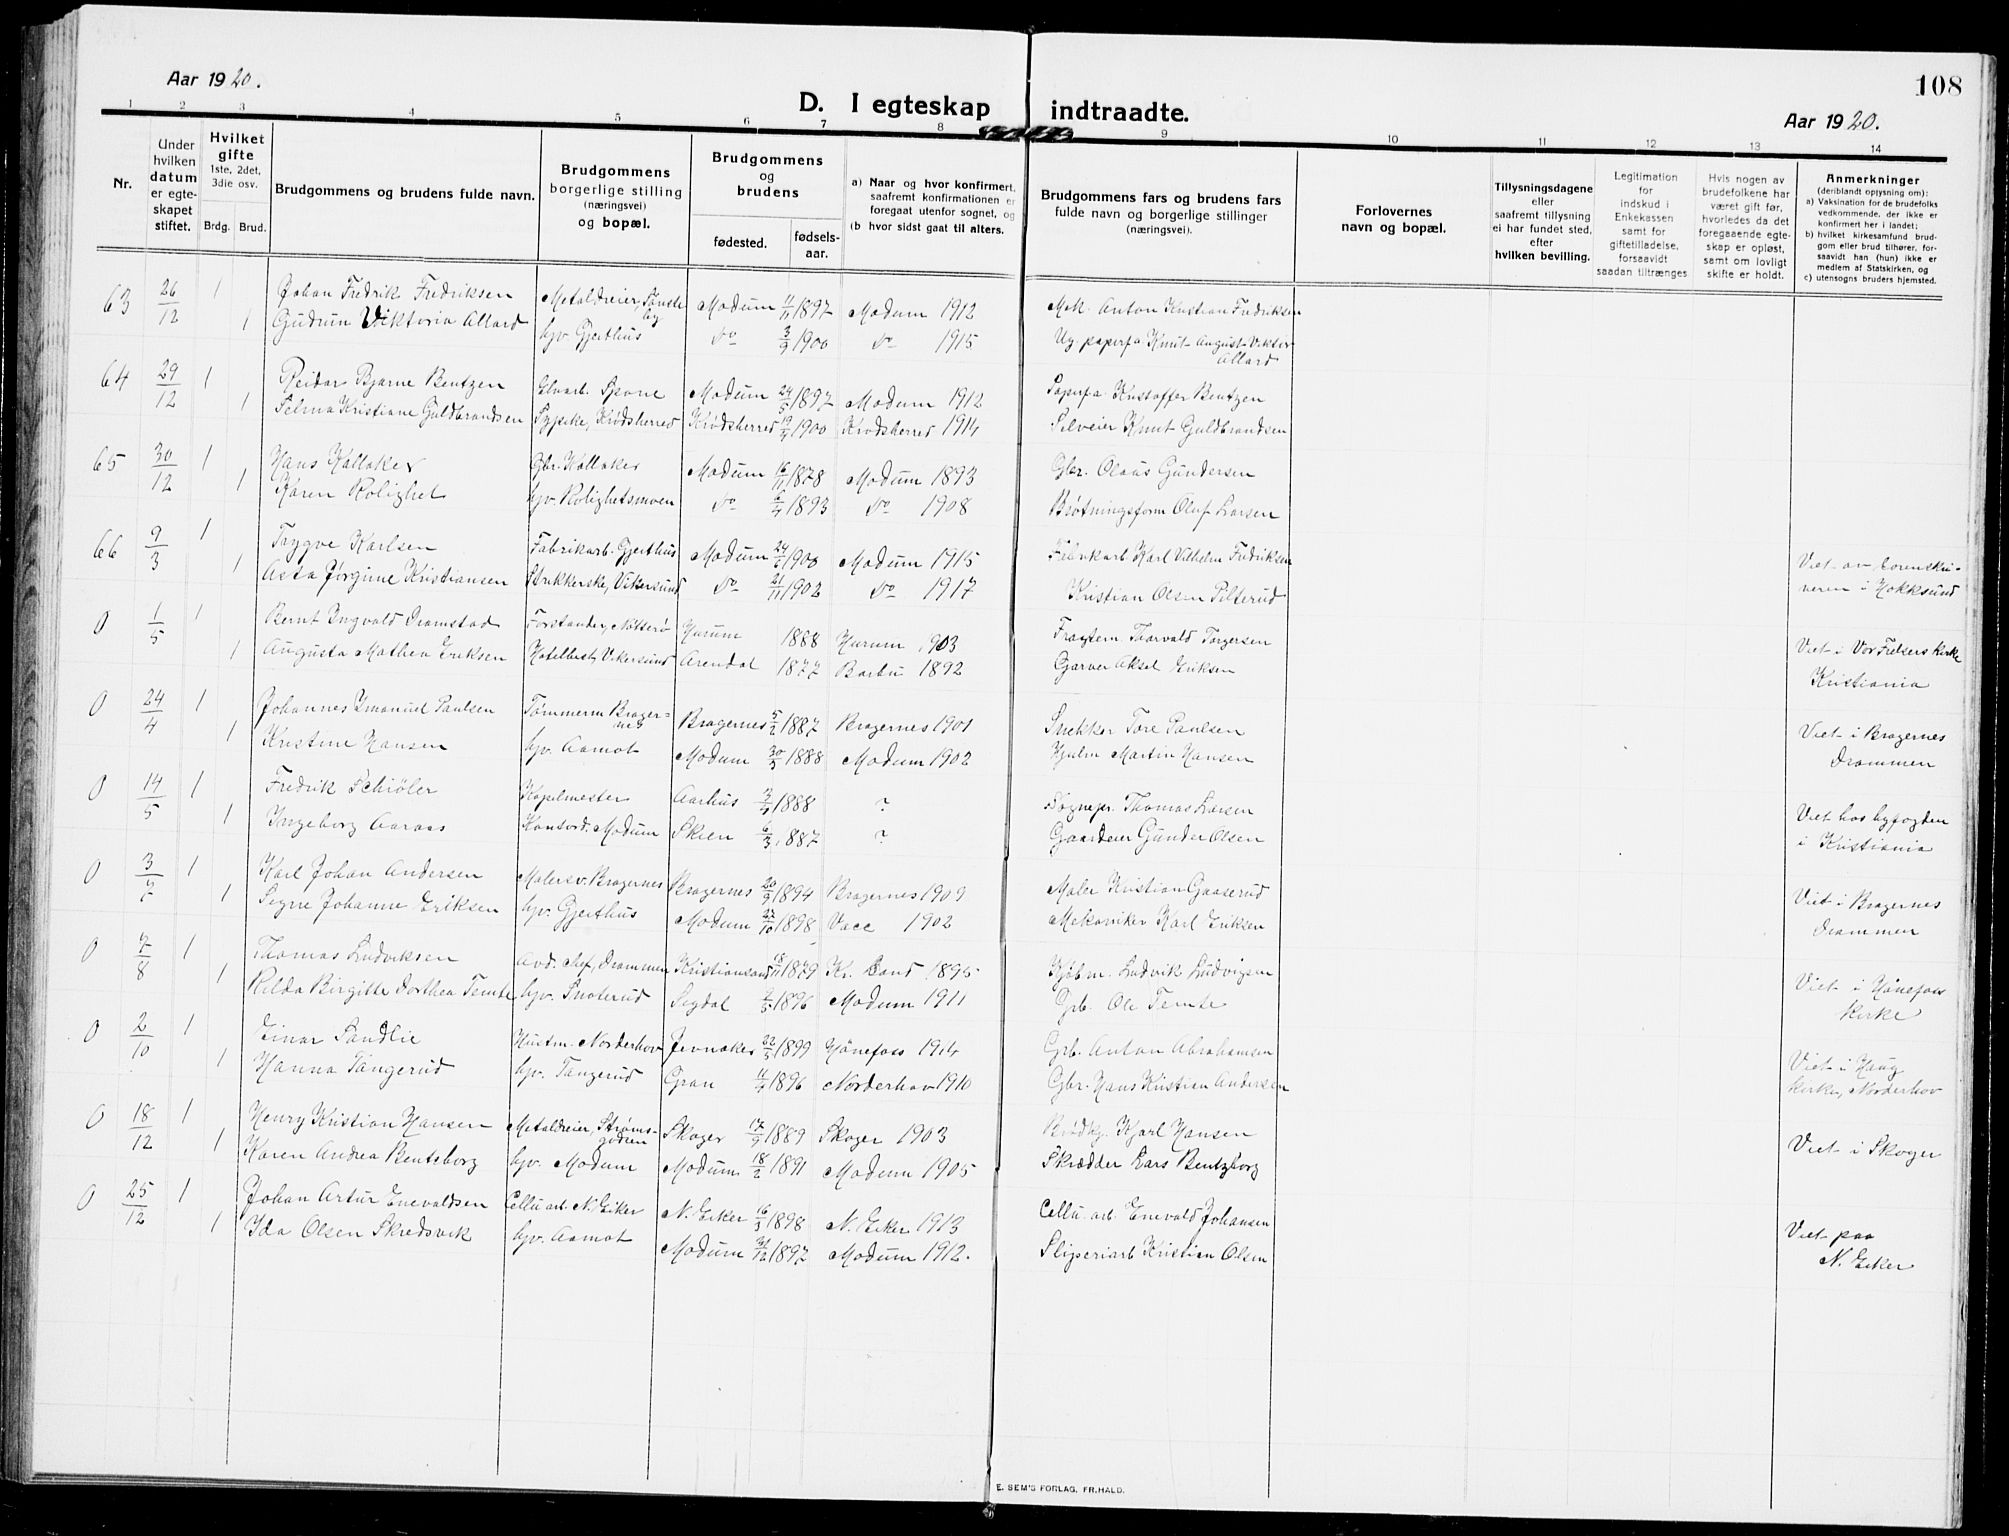 Aar 1920.
108
D. I egteskap indtraadte.
Aar 1920.
1 2 3 4 5 6 7 8 9 10 11 12 13 14
Nr.
Under hvilken datum er egteskapet stiftet.
Hvilket gifte
1ste, 2det, 3die osv.
Brdg. Brud.
Brudgommens og brudens fulde navn.
Brudgommens borgerlige stilling (næringsvei) og bopæl.
Brudgommens og brudens
fødested.
fødselsaar.
a) Naar og hvor konfirmert, saafremt konfirmationen er foregaat utenfor sognet, og
(b hvor sidst gaat til alters.
Brudgommens fars og brudens fars fulde navn og borgerlige stillinger (næringsvei).
Forlovernes navn og bopæl.
Tillysningsdagene eller saafremt tillysning ei har fundet sted, efter hvilken bevilling.
Legitimation for indskud i Enkekassen samt for giftetilladelse, forsaavidt saadan tiltrænges
Hvis nogen av brudefolkene har været gift før, hvorledes da det foregaaende egteskap er opløst, samt om lovligt skifte er holdt.
Anmerkninger
(deriblandt oplysning om):
a) Vaksination for de brudefolks vedkommende, der ikke er konfirmert her i landet;
b) hvilket kirkesamfund brudgom eller brud tilhører, forsaavidt han (hun) ikke er medlem af Statskirken, og
c) utensogns bruders hjemsted.
63 26/12 1 Johan Fredrik Fredriksen Metaldreier, Modum 11/11 1897 Modum 1912 Mek. Anton Kristian Fredriksen
1 Gudrun Viktoria Allard hjv. Gjethus do 3/9 1900 do 1915 Ug. paperfa. Knut August Viktor Allard
64 29/12 1 Reidar Bjarne Bentzen Spone Modum 24/5 1897 Modum 1912 Paperfa. Kristoffer Bentzen
1 Selma Kristiane Guldbrandsen Sypike, Krødsherred Krødsherred 19/4 1900 Krødsherred 1914 Selveier Knut Guldbrandsen
65 30/12 1 Hans Kolloker Gbr. Kolloker Modum 16/11 1878 Modum 1893 Gbr. Olaus Gundersen
1 Karen Rolighet hjv. Rolighetsmoen do 6/4 1893 do 1908 Brøtningsform Oluf Larsen
66 9/3 1 Trygve Karlsen Fabrikarb. Gjethus Modum 24/6 1900 Modum 1915 Fabrikarb Karl Vilhelm Fredriksen
1 Asta Jørgine Kristiansen Strikkerske, Vikersund do 21/11 1902 do 1917 Kristian Olsen Pilterud Viet av Sorenskriveren i Hokksund
0 1/5 1 Bernt Ingvald Dramstad Forstander, Nøtterø Hurum 1888 Hurum 1903 Fragtem. Thorvald Torgersen
1 Augusta Mathea Eriksen Hotelbest, Vikersund Arendal 1877 Barbu 1892 Garver Aksel Eriksen Viet i Vor Frelsers kirke Kristiania
0 24/4 1 Johannes Imanuel Paulsen Tømmerm Bragernes Bragernes 5/2 1887 Bragernes 1901 Snekker Tore Paulsen
1 Kristine Hansen hjv. Aamot Modum 30/3 1888 Modum 1902 Hjulm Martin Hansen Viet i Bragernes Drammen
0 14/5 1 Fredrik Schiøler Kapelmester Aarhus 3/4 1888 ? Sognepr. Thomas Larsen
1 Ingeborg Aaraas Kontord. Modum Skien 6/3 1887 ? Gaardeier Gunder Olsen Viet hos byfogden i Kristiania
0 3/7 1 Karl Johan Andersen Malersv. Bragernes Bragernes 20/9 1894 Bragernes 1909 Maler Kristian Gaaserud
1 Signe Johanne Eriksen hjv. Gjethus Modum 22/10 1898 Vacc 1902 Mekaniker Karl Eriksen Viet i Bragernes Drammen
0 7/8 1 Thomas Ludviksen Avd. chef, Drammen Kristiansand 18/11 1879 Kr. Sand 1895 Kjøbm. Ludvik Ludvigsen
1 Rilda Birgitte Dorthea Temte hjv. Snoterud Sigdal 9/5 1896 Modum 1911 Grb. Ole Temte Viet i Hønefoss kirke
0 2/10 1 Einar Sandlie Hustm. Norderhov Jevnaker 22/5 1899 Hønefoss 1914 Grb. Anton Abrahamsen
1 Hanna Tangerud hjv. Tangerud Gran 11/4 1896 Norderhov 1910 Gbr. Hans Kristian Andersen Viet i Haug kirke, Norderhov
0 18/12 1 Henry Kristian Hansen Metaldreier, Strømsgodsen Skoger 17/9 1889 Skoger 1903 Brødkj. Kjarl Hansen
1 Karen Andrea Bentsborg hjv. Modum Modum 18/2 1891 Modum 1905 Skrædder Lars Bentzborg Viet i Skoger
0 25/12 1 Johan Artur Enevaldsen Cellu arb. N. Eiker N. Eiker 16/3 1898 N. Eiker 1913 Cellu. arb. Enevald Johansen
1 Ida Olsen Skredsvik hjv. Aamot Modum 31/12 1897 Modum 1912. Sliperiarb Kristian Olsen Viet paa N. Eiker
E. SEM'S FORLAG, FR.HALD.